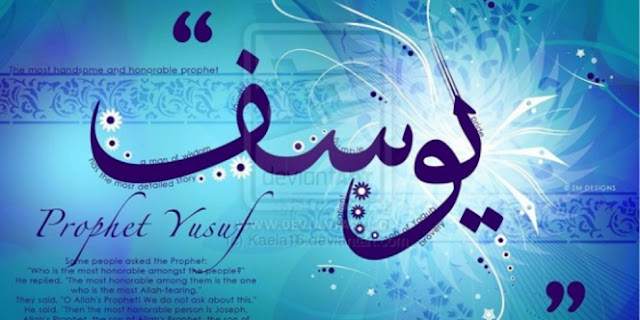 “
The most handsome and honorable prophet
يوسف
a man of wisdom
has the most detailed story
humble
pride
patient
son of Yaqub
bravery
deviantART
© ZM DESIGNS
Prophet Yusuf
WWW.DEVIANTART.COM
(c) Kaela16.deviantart.com
Some people asked the Prophet:
"Who is the most honorable amongst the people?"
He replied, "The most honorable among them is the one
who is the most Allah-fearing."
They said, "O Allah's Prophet! We do not ask about this."
He said, "Then the most honorable person is Joseph,
Allah's Prophet, the son of Allah's Prophet, the son of
”